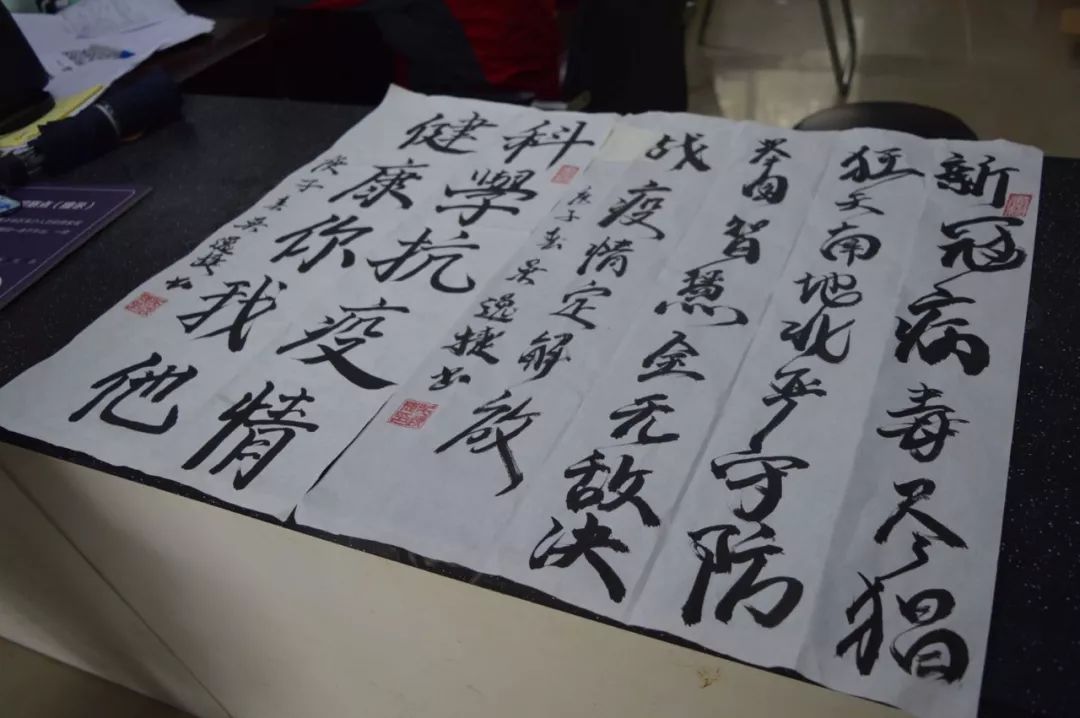 新冠病毒尽猖
狂天南地北严守防
举国智慧全无敌决
战疫情定解放
庚子春吴逸捷书
科學抗疫情
健康你我他
庚子春吴逸捷书